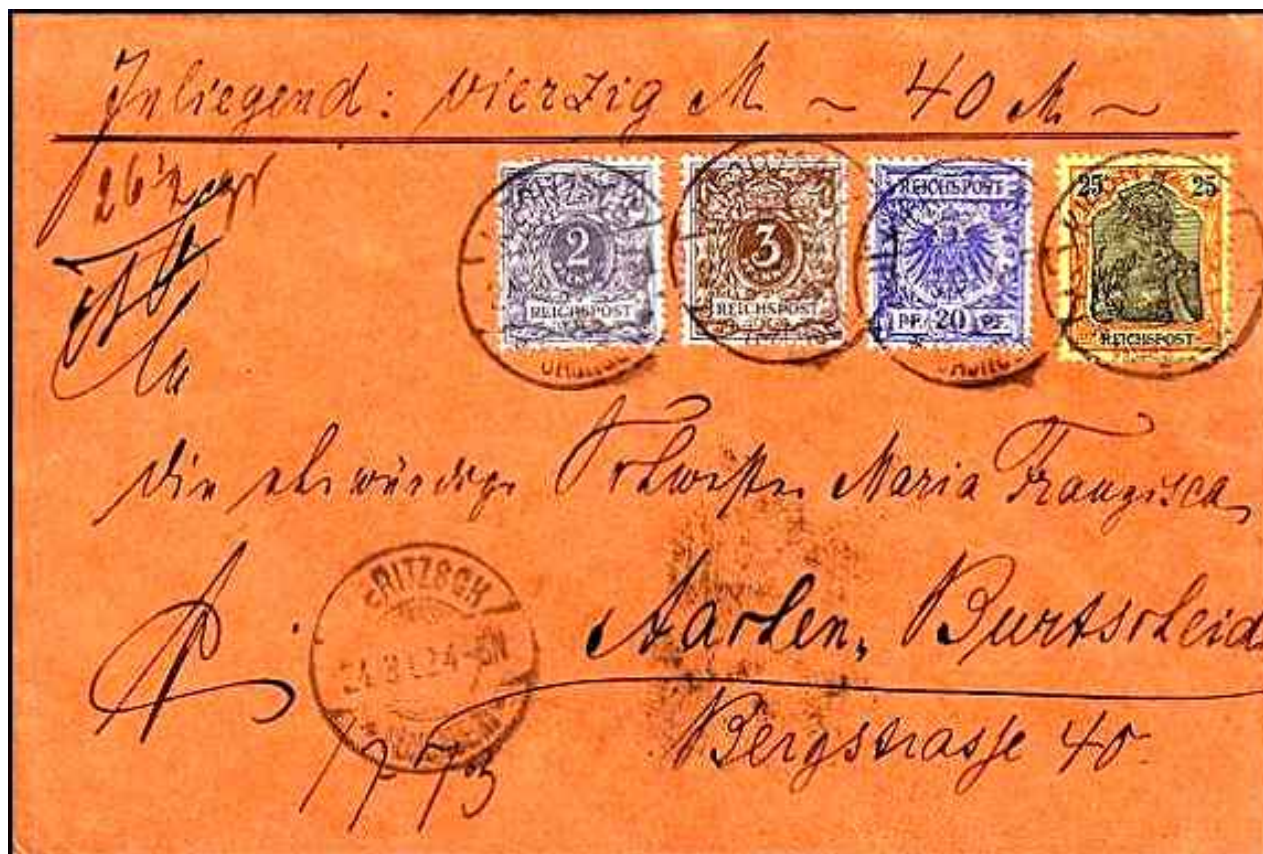 Inliegend: vierzig M ~ 40 M ~
26½ gr
2
REICHSPOST
3
REICHSPOST
REICHSPOST
PF. 20 PF.
25 25
REICHSPOST
die ehrwürdige Schwester Maria Franzisca
RITZSCH
Aachen, Burtscheid
Bergstrasse 40